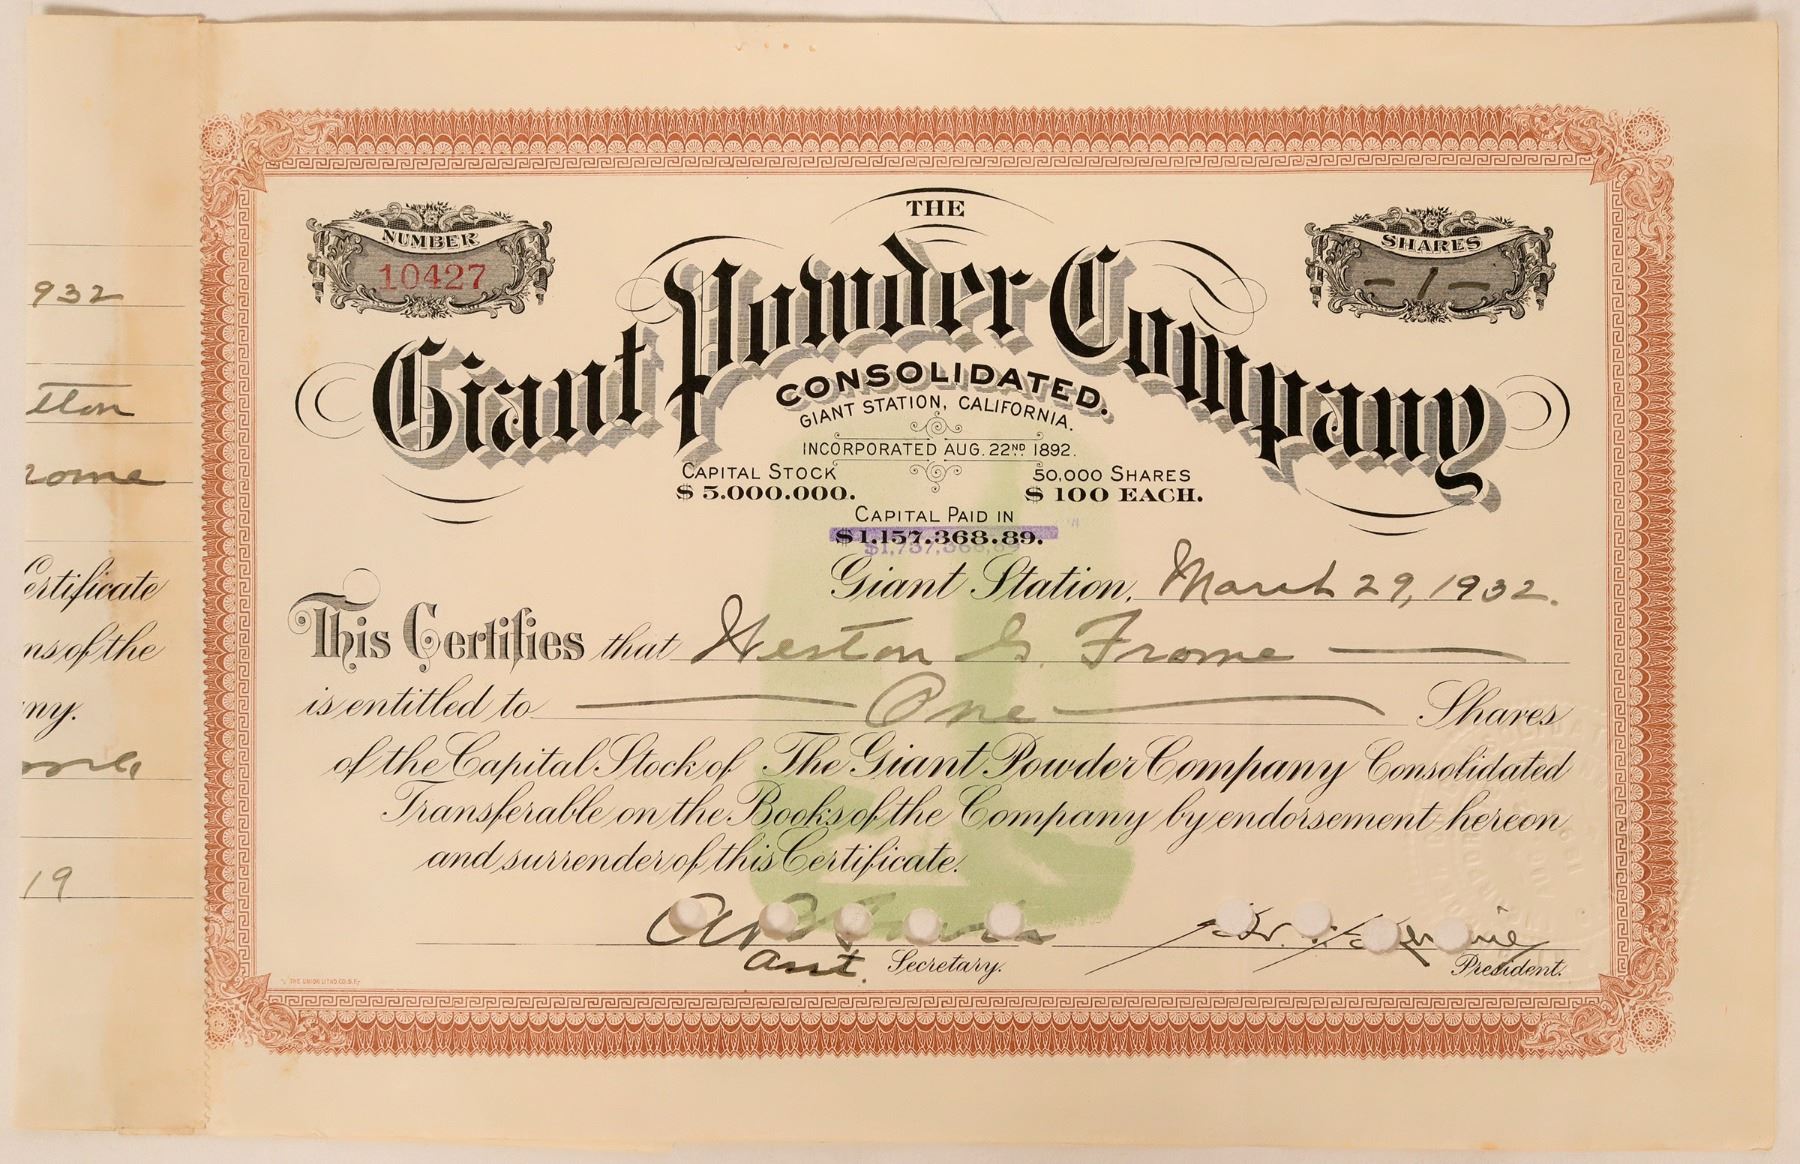 932
tton
rome
ertificate
ns of the
ny.
19
NUMBER
10427
SHARES
- 1 -
THE
Giant Powder Company
CONSOLIDATED.
GIANT STATION, CALIFORNIA.
INCORPORATED AUG. 22ND 1892.
CAPITAL STOCK
$ 5.000.000.
50,000 SHARES
$ 100 EACH.
CAPITAL PAID IN
$1,157.368.89.
$1,737,368,89
Giant Station, March 29, 1932.
This Certifies that Weston G. Frome
is entitled to One Shares
of the Capital Stock of The Giant Powder Company Consolidated
Transferable on the Books of the Company by endorsement hereon
and surrender of this Certificate.
Asst. Secretary.
President.
THE UNION LITHO. CO. S. F.